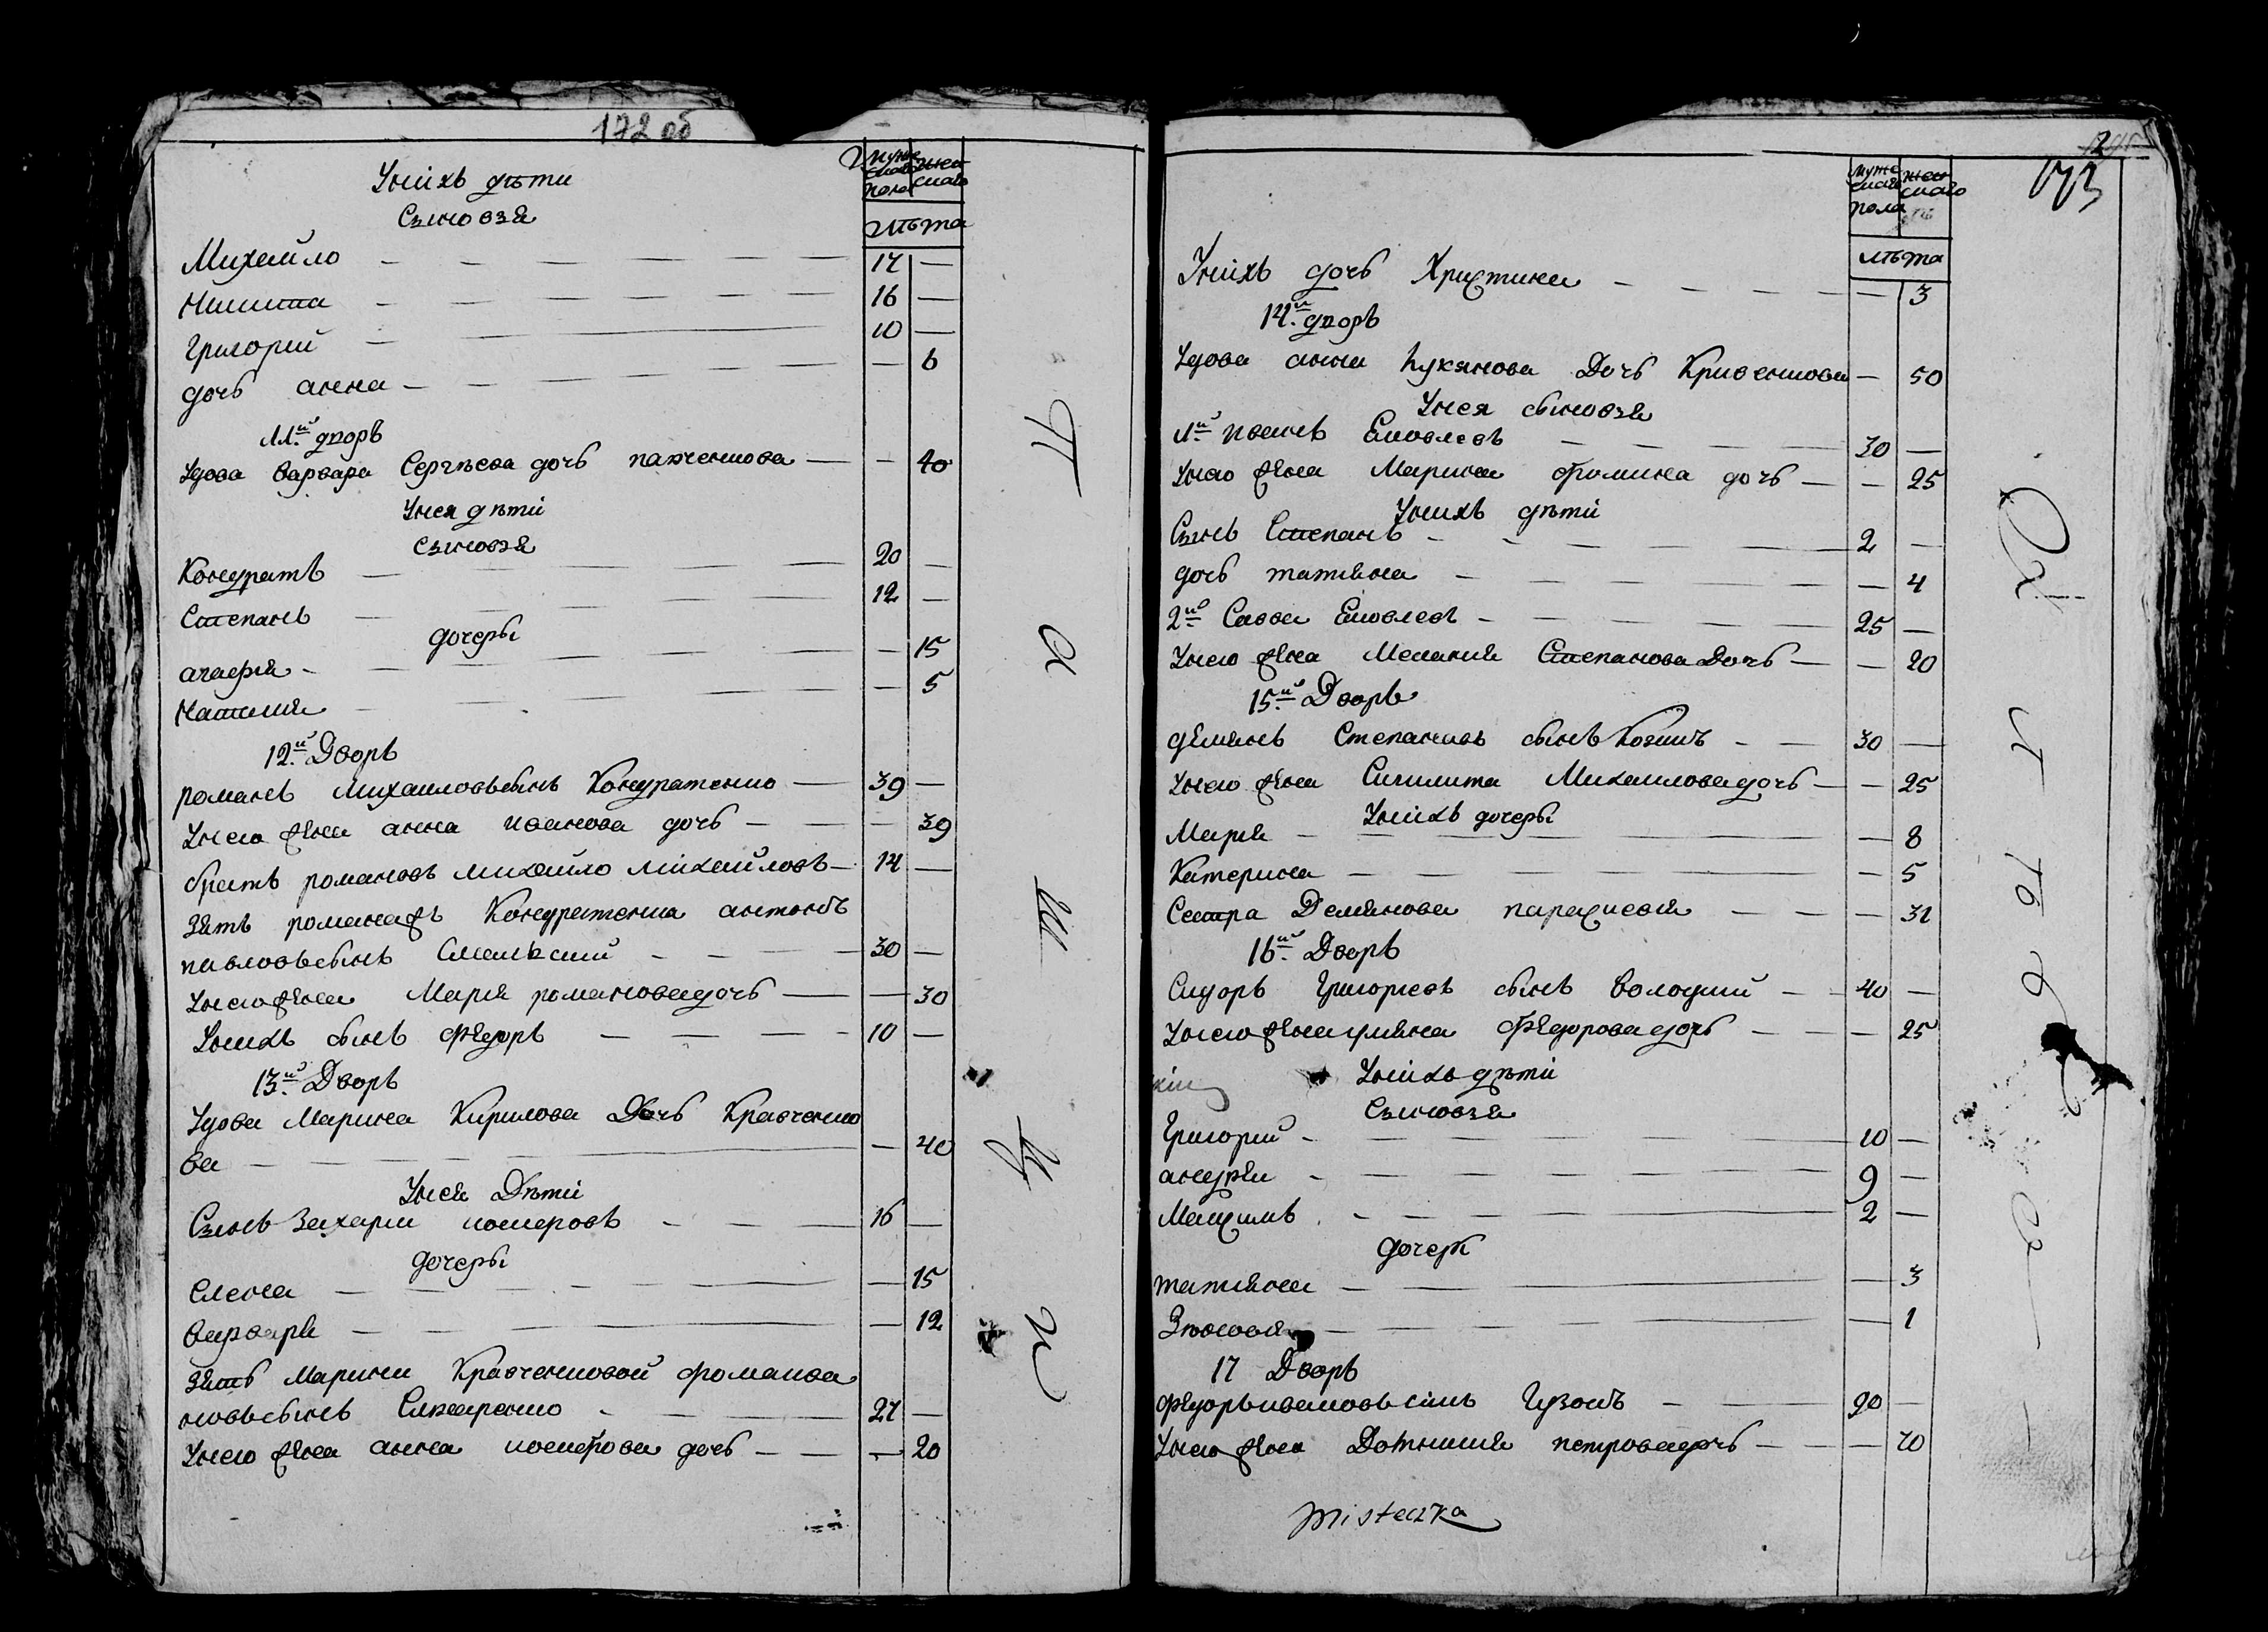 172 об
Унихъ дѣти
Сынов​ья
мужескаго пола
женскаго
лѣта
Михайло — 17 —
Никита — 16 —
Григорий — 10 —
дочь анна — — 6
11й дворъ
Удова варвара Сергѣева дочь — — 40
Унея дѣти
Сыновья
Кондратъ — 20 —
Степанъ — 12 —
дочеры
агафия — — 15
Наталия — — 5
12й Дворъ
романъ Михаиловъ сынъ Кондратенко — 39 —
Унего жена анна иванова дочь — — 39
братъ романовъ михайло михайловъ — 14 —
Зять романавъ Кондратенка антонъ
павловъ сынъ — 30 —
Унего жена Мария романова дочь — — 30
Унихъ сынъ Федоръ — 10 —
13й Дворъ
Удова Марина Кирилова Дочь Кравченко
ва — — 40
Унея Дѣти
Сынъ Захарий — 16 —
дочеры
Елена — — 15
варвара — — 12
Зять Марины Кравченковой
новъ сынъ — 27 —
Унего жена анна дочь — — 20
П а ш к и
173
мужескаго пола
женскаго
лѣта
Унихъ дочь Христина — — 3
14й дворъ
Удова анна Лукянова Дочь — 50
Унея сыновья
1й иванъ Яковлевъ — 30 —
Унего жена Марина Фомина дочь — — 25
Унихъ дѣти
Сынъ Степанъ — 2 —
дочь татияна — — 4
2й Савва Яковлевъ — 25 —
Унего жена Мелания Степанова Дочь — — 20
15й Дворъ
демянъ Степановъ сынъ — 30 —
Унего жена Михаилова дочь — — 25
Унихъ дочеры
Мария — — 8
Катерина — — 5
Сестра Демянова параскевия — — 31
16й Дворъ
Сидоръ Григориевъ сынъ — 40 —
Унего жена уляна Федорова дочь — — 25
Унихъ дѣти
Сыновья
Григорий — 10 —
андрей — 9 —
Максимъ — 2 —
дочери
татияна — — 3
Зѣновия — — 1
17 Дворъ
Федоръ ивановъ синъ — 90 —
Унего жена петрова дочь — — 70
misteczka